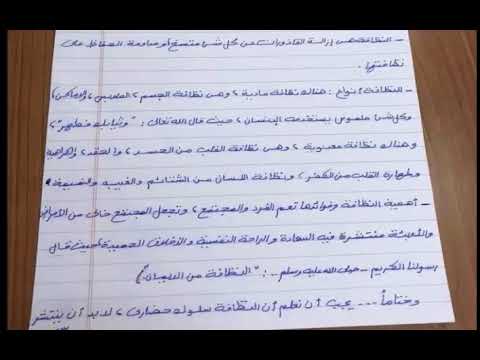 - النظافة هى إزالة القاذورات من كل شئ متسخ أو مداومة الحفاظ على
نظافتها .
- النظافة أنواع : هناك نظافة مادية ، وهى نظافة الجسم ، الملابس ،
وكل شئ ملموس يستخدمه الإنسان ، حيث قال الله تعالى : "وثيابك فطهر" ،
وهناك نظافة معنوية ، وهى نظافة القلب من الحسد ، والحقد ، والكراهية
وطهارة القلب من الكفر ، ونظافة اللسان من الشتائم والغيبه والنميمة
- أهمية النظافة وفوائدها تعم الفرد والمجتمع ، وتجعل المجتمع خالى من الأمراض
والأوبئة منتشرة فيه السعادة والراحة النفسية والأخلاق الحميدة ، حيث قال
رسولنا الكريم - صلى الله عليه وسلم - .. : " النظافة من الايمان "
وختاماً --- يجب أن نعلم أن النظافة سلوك حضارى ، لابد أن ينتشر